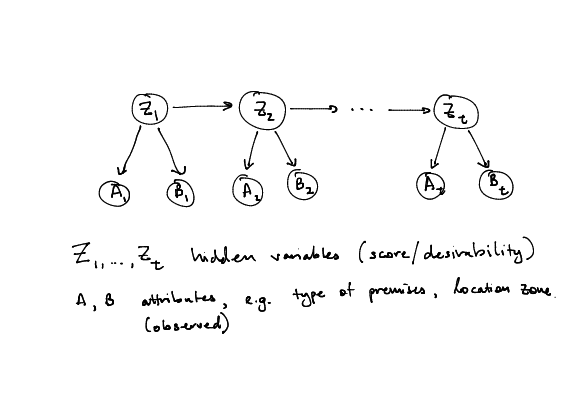 Z₁ Z₂ ... Z_t
A₁ B₁ A₂ B₂ A_t B_t
Z₁, ..., Z_t hidden variables (score/desirability)
A, B attributes, e.g. type of premises, location zone.
(observed)